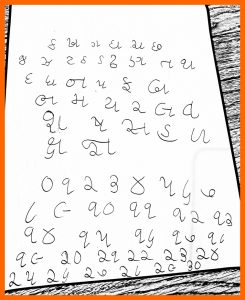 ક ખ ગ ઘ ચ છ
જ ઝ ટ ઠ ડ ઢ ણ ત થ
દ ધ ન પ ફ બ
ભ મ ય ર લ વ
શ ષ સ હ ળ
ક્ષ જ્ઞ
૦ ૧ ૨ ૩ ૪ ૫ ૬ ૭
૮ ૯ ૧૦ ૧૧ ૧૨ ૧૩
૧૪ ૧૫ ૧૬ ૧૭ ૧૮
૧૯ ૨૦ ૨૧ ૨૨ ૨૩ ૨૪
૨૫ ૨૬ ૨૭ ૨૮ ૨૯ ૩૦